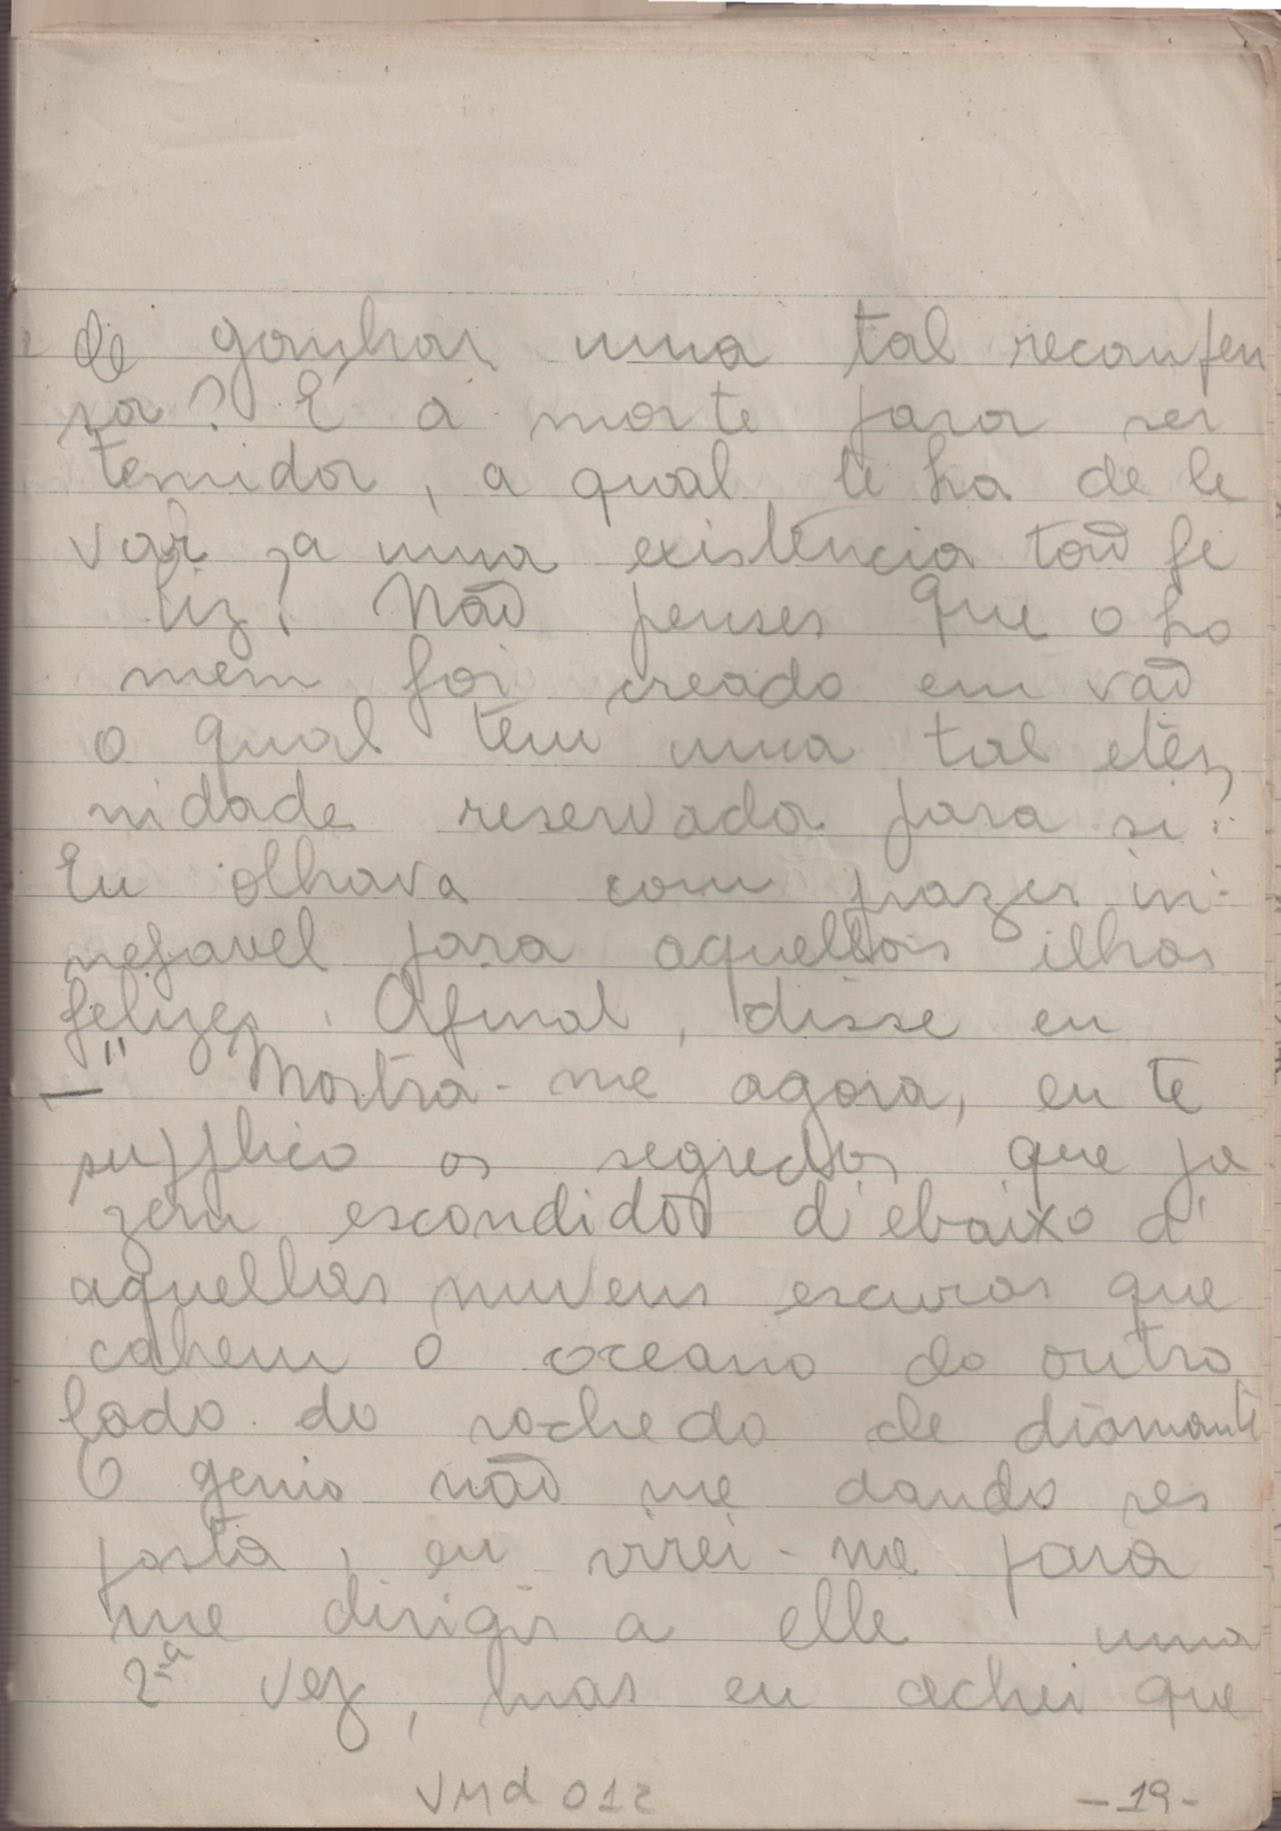 de ganhar uma tal recompen
sa? É a morte para ser
temida, a qual te ha de le
var a uma existência tão fe
liz? Não penses que o ho
mem foi creado em vão
o qual tem uma tal eter
nidade reservada para si.
Eu olhava com prazer in-
nefavel para aquellas ilhas
felizes. Afinal, disse eu
—" Mostra-me agora, eu te
supplico os segredos que ja
zem escondidos d'ebaixo d'
aquellas nuvens escuras que
cahem o oceano do outro
lado do rochedo de diamante
O genio não me dando res
posta, eu virei-me para
me dirigir a elle uma
2ª vez, mas eu achei que
VMd 012 -19-